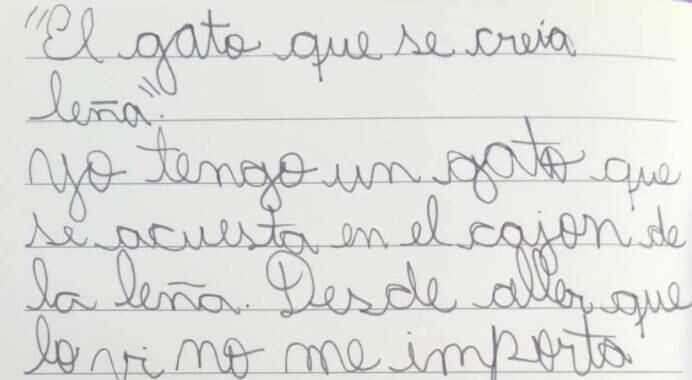 "El gato que se creia
leña".
yo tengo un gato que
se acuesta en el cajon de
la leña. Desde aller que
lo vi no me importa